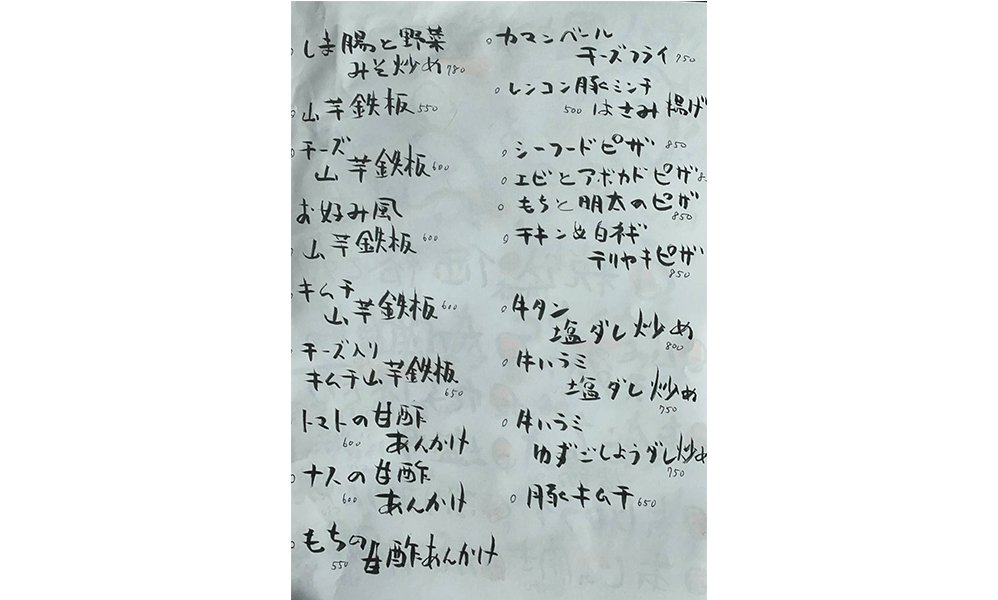 しま腸と野菜
みそ炒め 780
山芋鉄板 550
チーズ
山芋鉄板 600
お好み風
山芋鉄板 600
キムチ
山芋鉄板 600
チーズ入り
キムチ山芋鉄板
650
トマトの甘酢
600 あんかけ
ナスの甘酢
600 あんかけ
もちの
550 甘酢あんかけ
カマンベール
チーズフライ 750
レンコン豚ミンチ
500 はさみ揚げ
シーフードピザ 850
エビとアボカドピザ
もちと明太のピザ
850
チキン&白ネギ
テリヤキピザ
850
牛タン
塩ダレ炒め
800
牛ハラミ
塩ダレ炒め
750
牛ハラミ
ゆずごしょうダレ炒め
750
豚キムチ 650